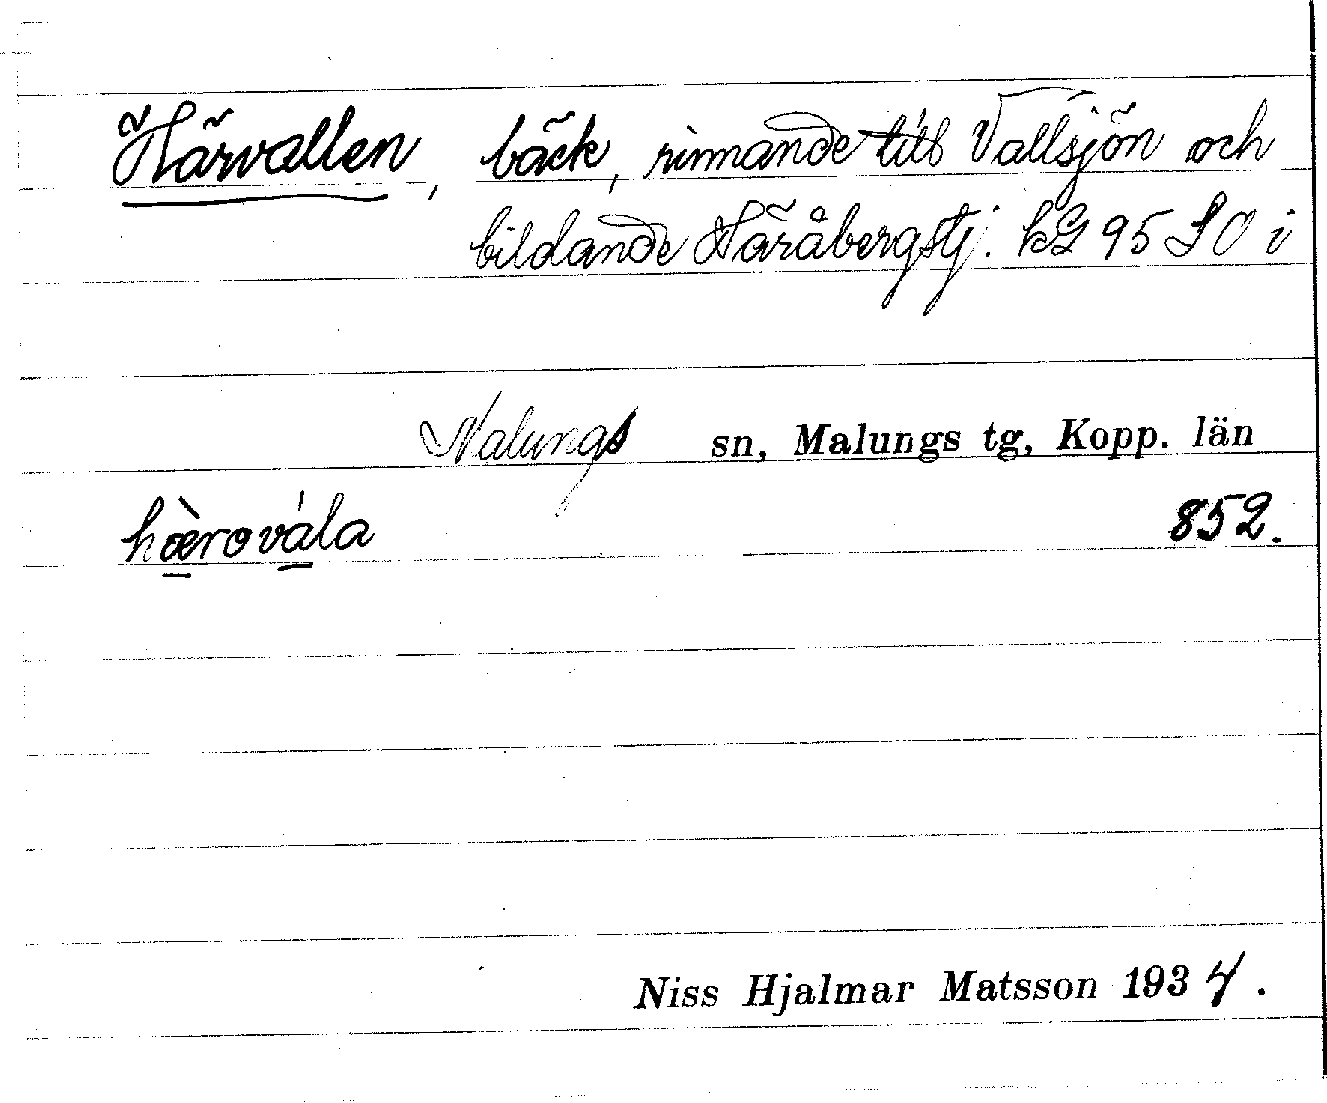 Härvallen, bäck, rinnande till Vallsjön och
bildande Häråbergstj. kG 95 SO i
Malungs sn, Malungs tg, Kopp. län
hæ̀rovála 852.
Niss Hjalmar Matsson 1934.